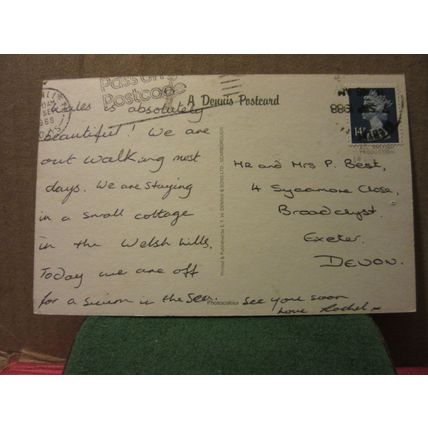 Pass on
Postcode
A Dennis Postcard
14
Wales is absolutely
beautiful! We are
out walking most
days. We are staying
in a small cottage
in the Welsh hills.
Today we are off
for a swim in the sea. See you soon
Love Rachel x
Mr and Mrs P. Best,
4 Sycamore Close,
Broadclyst
Exeter.
DEVON.
Printed & Published by E. T. W. DENNIS & SONS LTD., SCARBOROUGH
Photocolour